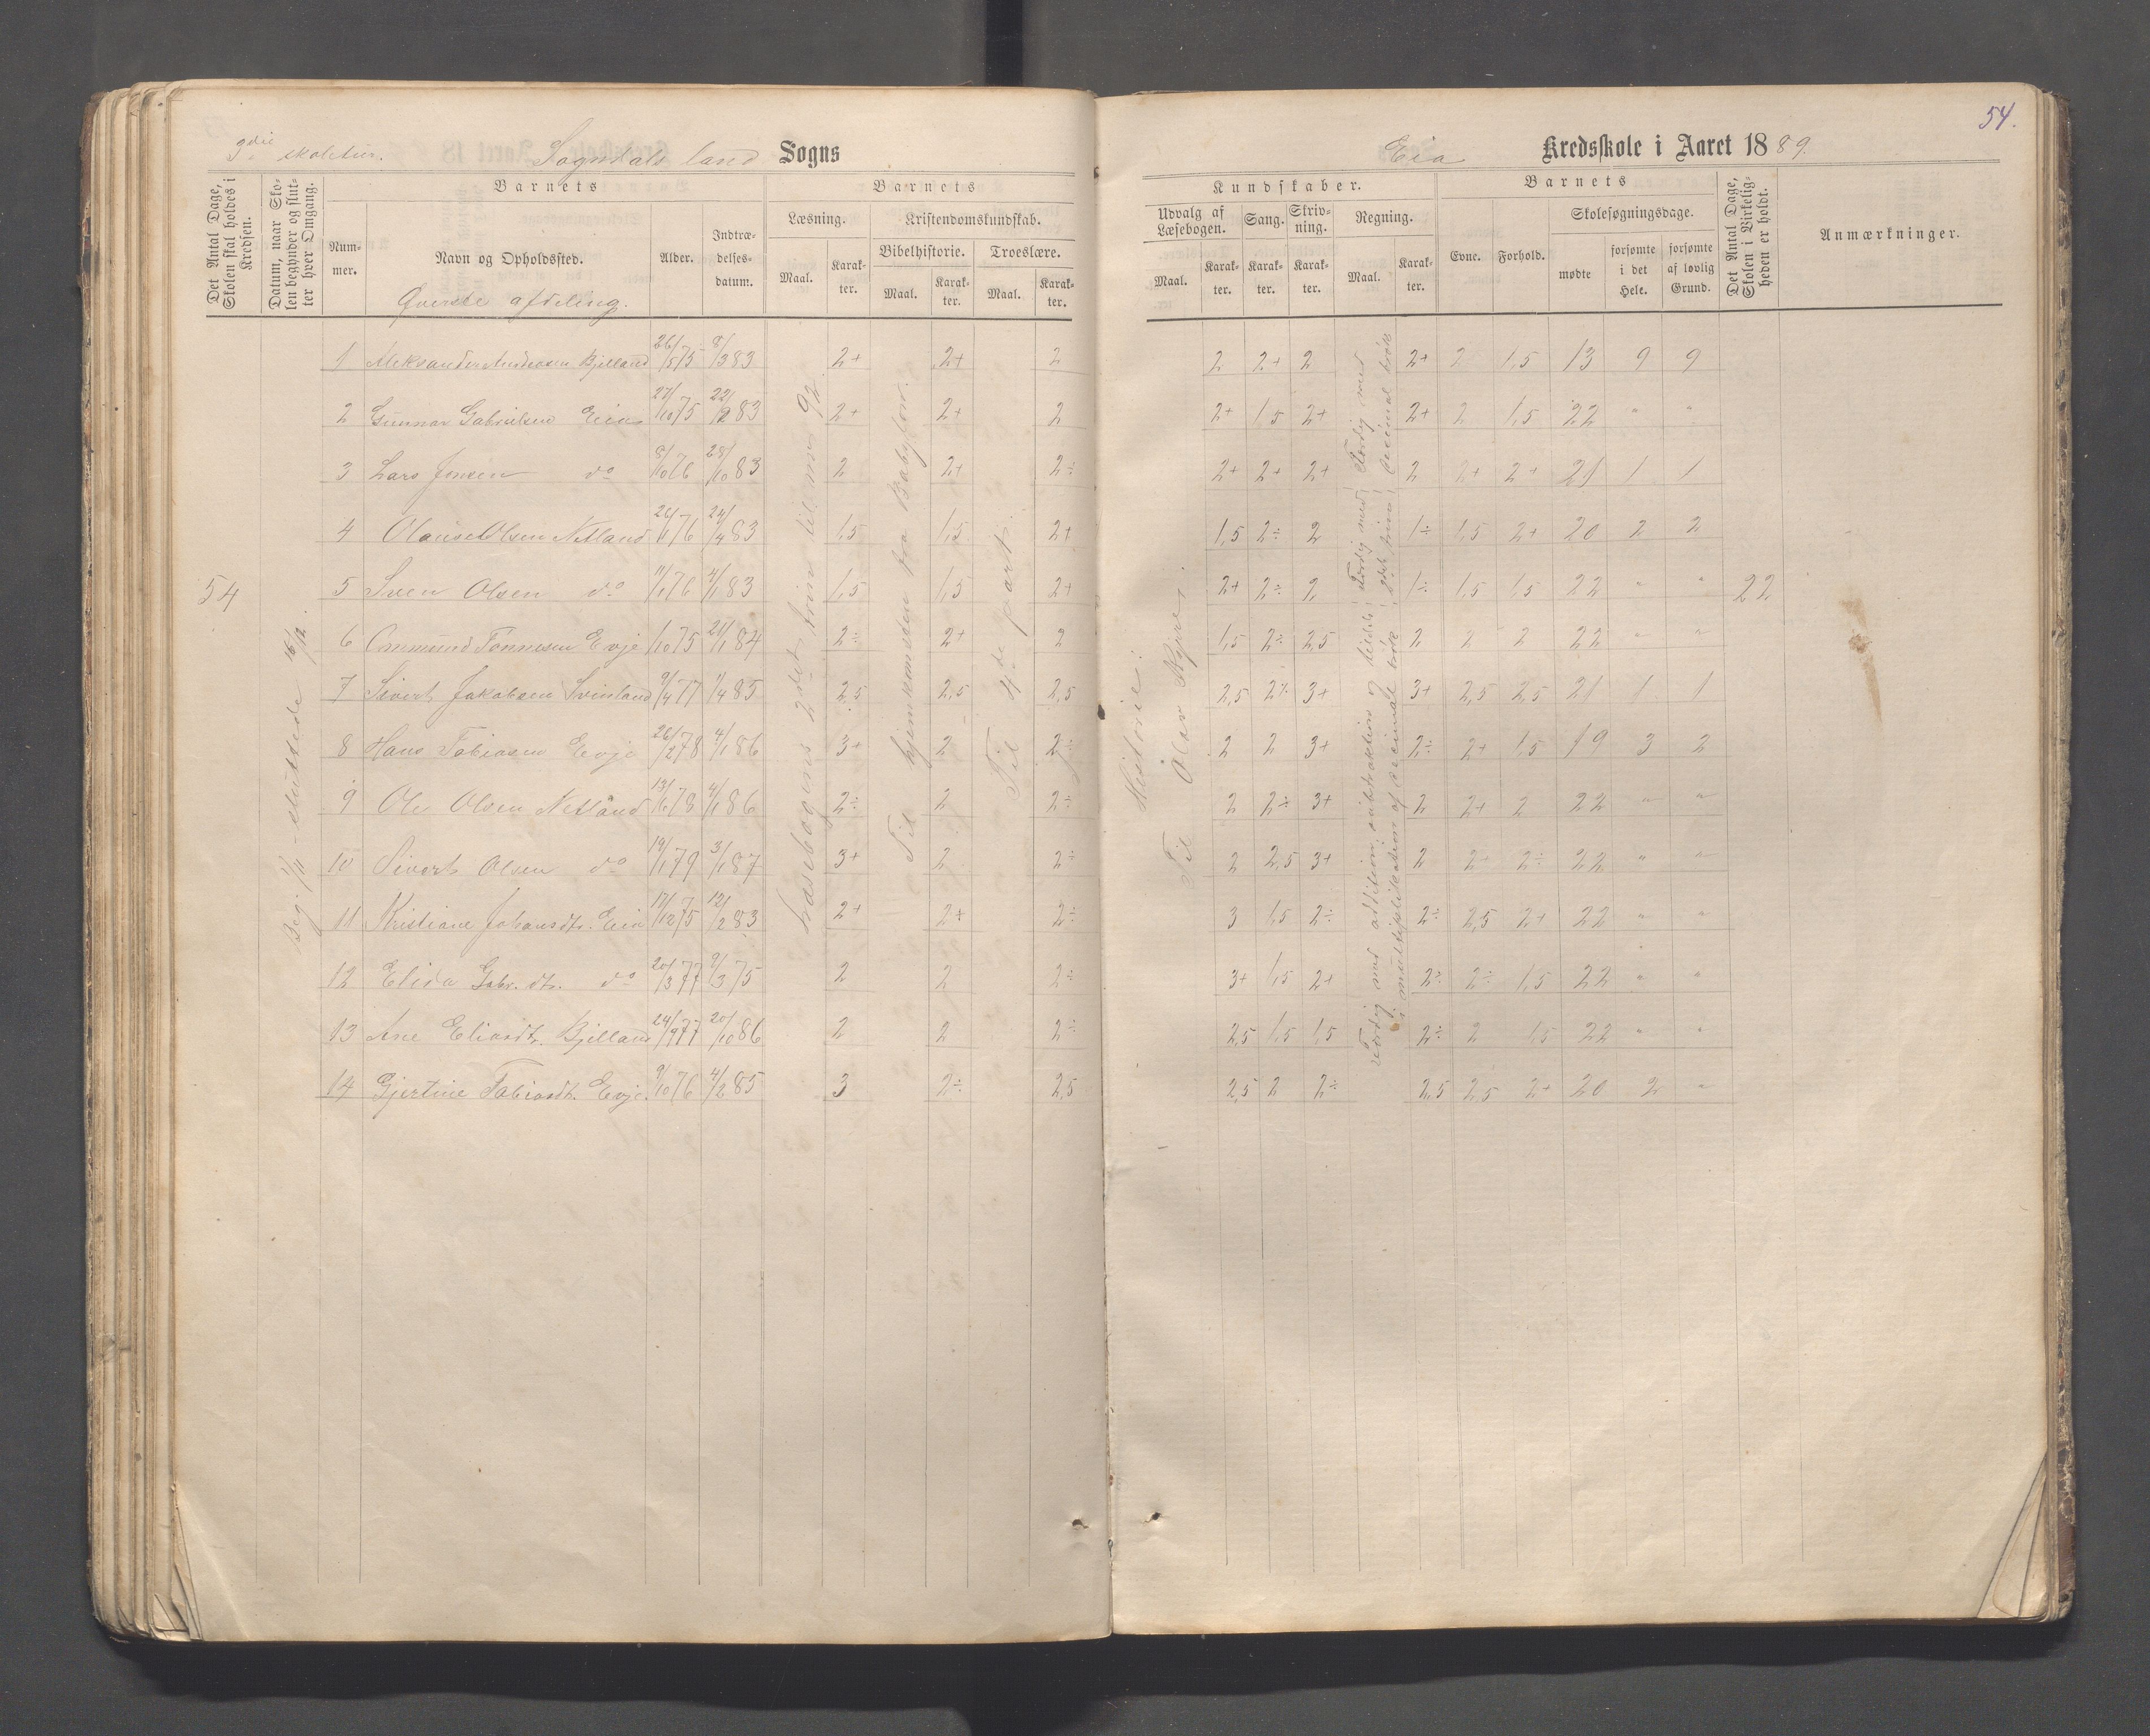 54.
3die skoletur. Sogndals land Sogns
Eia Kredsskole i Aaret 1889.
Det Antal Dage, Skolen skal holdes i Kredsen.
Datum, naar Skolen begynder og slutter hver Omgang.
Barnets
Nummer.
Navn og Opholdssted.
Alder.
Indtrædelsesdatum.
Barnets
Læsning.
Maal.
Karakter.
Kristendomskundskab.
Bibelhistorie.
Maal.
Karakter.
Troeslære.
Maal.
Karakter.
Kundskaber.
Udvalg af Læsebogen.
Maal.
Karakter.
Sang.
Karakter.
Skrivning.
Karakter.
Regning.
Maal.
Karakter.
Barnets
Evne.
Forhold.
Skolesøgningsdage.
mødte
forsømte i det Hele.
forsømte af lovlig Grund.
Det Antal Dage, Skolen i Virkeligheden er holdt.
Anmærkninger.
Øverste afdeling.
54
Beg. 1/11 - sluttede 16/12.
Læsebogens 2det trin til no 92.
Til hjemkomsten fra Babylon.
Til 4de part.
Historie:
Til Olav Kyrre.
Færdig med addition, subtraktion
multiplikation af decimalbrøk
22
1 Aleksander Andreasen Bjelland 26/5 75 8/3 83 2+ 2+ 2 2 2+ 2 2+ 2 1,5 13 9 9
2 Gunnar Gabrielsen Eia 27/10 75 22/2 83 2+ 2+ 2 2+ 1,5 2+ 2+ 2 1,5 22 " "
3 Lars Jonsen do 8/10 76 28/10 83 2 2+ 2÷ 2+ 2+ 2+ 2 2+ 2+ 21 1 1
4 Olaus Olsen Netland 26/1 76 24/4 83 1,5 1,5 2+ 1,5 2÷ 2 1÷ 1,5 2+ 20 2 2
5 Sven Olsen do 11/1 76 4/1 83 1,5 1,5 2+ 2+ 2÷ 2 1÷ 1,5 1,5 22 " "
6 Osmund Tønnesen Evje 1/10 75 21/1 84 2÷ 2+ 2 1,5 2÷ 2,5 2 2 2 22 " "
7 Sivert Jakobsen Svinland 9/4 77 1/4 85 2,5 2,5 2,5 2,5 2÷ 3+ 3+ 2,5 2,5 21 1 1
8 Hans Tobiasen Evje 26/2 78 4/1 86 3+ 2 2÷ 2 2 3+ 2÷ 2+ 1,5 19 3 2
9 Ole Olsen Netland 13/6 78 4/1 86 2÷ 2 2÷ 2 2÷ 3+ 2 2+ 2 22 " "
10 Sivert Olsen do 19/1 79 3/1 87 3+ 2 2÷ 2 2,5 3+ 2 2+ 2÷ 22 " "
11 Kristiane Johansdtr. Eia 17/12 75 12/2 83 2+ 2+ 2÷ 3 1,5 2÷ 2÷ 2,5 2+ 22 " "
12 Elida Gabr.dtr. do 20/3 77 9/3 75 2 2 2÷ 3+ 1,5 2+ 2÷ 2÷ 1,5 22 " "
13 Ane Eliasdtr. Bjelland 24/9 77 20/10 86 2 2 2÷ 2,5 1,5 1,5 2÷ 2 1,5 22 " "
14 Gjertine Tobiasdt. Evje. 9/10 76 4/2 85 3 2÷ 2,5 2,5 2 2÷ 2,5 2,5 2+ 20 2 "